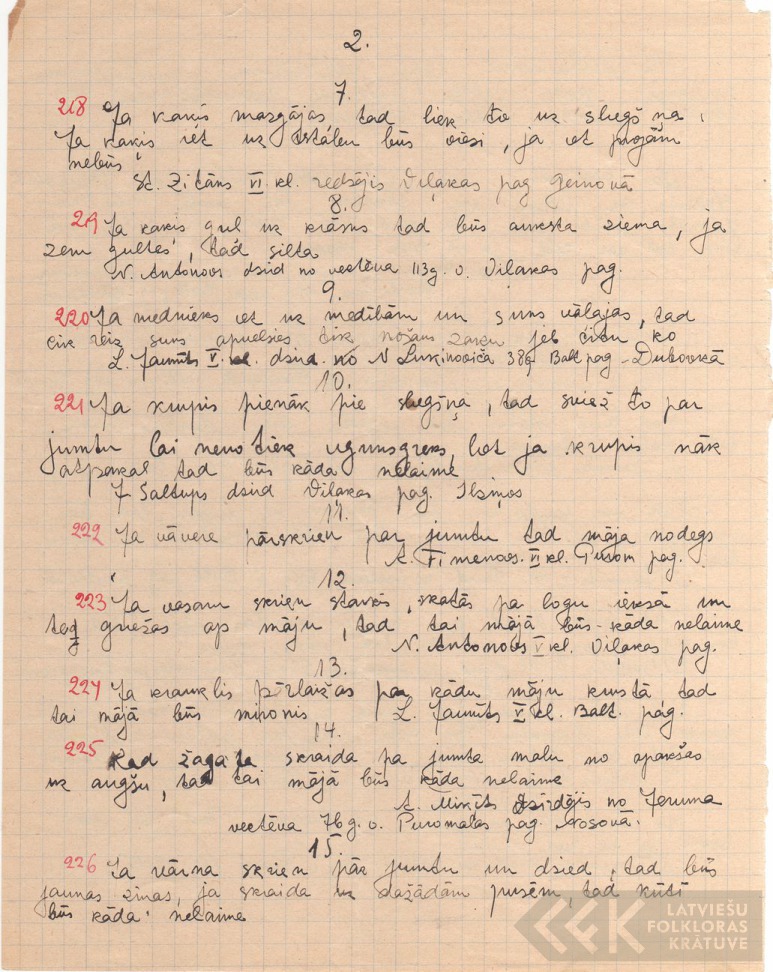 2.
7.
218 Ja kaķis mazgājas tad liek to uz sliegšņa.
Ja kaķis iet uz istabu būs viesi, ja iet projām
nebūs
St. Zitāns VI kl. redzējis Viļakas pag
8.
219 Ja kaķis guļ uz krāsns tad būs auksta ziema, ja
zem gultes, tad silta
N. Antonovs dzird no vectēva 113 g. v. Viļakas pag.
9.
220 Ja mednieks iet uz medībām un suns vālājas, tad
cik reiz suns apvelsies tik nošaus zaķu jeb citu ko
L. Jaunīts V kl. dzird. no N Lukinoviča 38g Balt pag-Dubovkā
10.
221 Ja krupis pienāk pie sliegšņa, tad sviež to par
jumtu lai nenotiek ugunsgreks, bet ja krupis nāk
atpakaļ tad būs kāda nelaime
J Saltups dzird Viļakas pag.
11.
222 Ja vāvere pārskrien par jumtu tad māja nodegs
A. Fimenovs. VI kl. Purom pag.
12.
223 Ja vasaru skrien starks, skatās pa logu iekšā un
tad griežas ap māju, tad tai mājā būs kāda nelaime
N. Antonovs V kl. Viļakas pag.
13.
224 Ja krauklis pārlaižas par kādu māju krustā, tad
tai mājā būs mironis L. Jaunīts V kl. Balt. pag.
14.
225 Kad žagata skraida pa jumta malu no apakšas
uz augšu, tad tai mājā būs kāda nelaime
A. Mikīts dzirdējis no Jeruma
vectēva 76 g. v. Puromalas pag. Nosovā.
15.
226 Ja vārna skrien pār jumtu un dzied, tad būs
jaunas ziņas, ja skraida uz dažādām pusēm, tad kūtī
būs kāda nelaime
LATVIEŠU
FOLKLORAS
KRĀTUVE